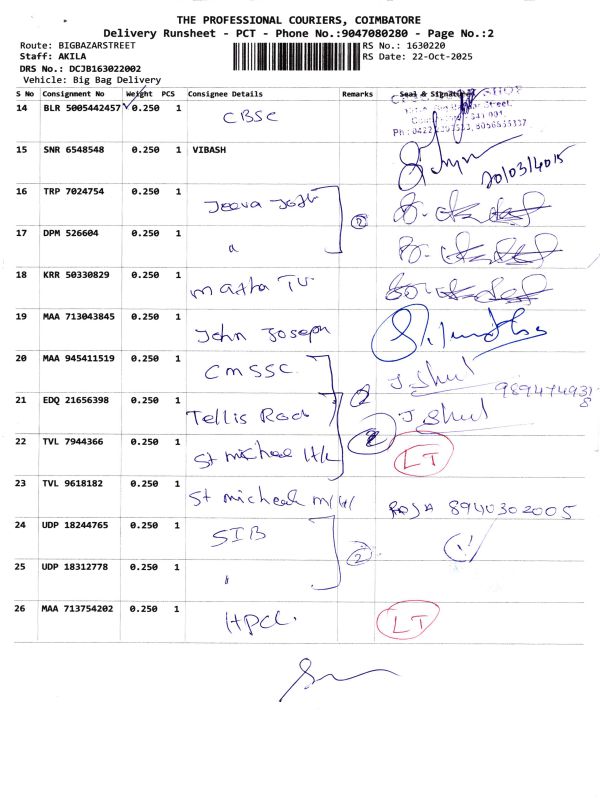 THE PROFESSIONAL COURIERS, COIMBATORE
Delivery Runsheet - PCT - Phone No.:9047080280 - Page No.:2
Route: BIGBAZARSTREET RS No.: 1630220
Staff: AKILA RS Date: 22-Oct-2025
DRS No.: DCJB163022002
Vehicle: Big Bag Delivery
S No Consignment No Weight PCS Consignee Details Remarks Seal & Signature
14 BLR 5005442457 0.250 1 CBSC
15 SNR 6548548 0.250 1 VIBASH 20/03/4015
16 TRP 7024754 0.250 1 Jeeva 2
17 DPM 526604 0.250 1 "
18 KRR 50330829 0.250 1 Martha TV
19 MAA 713043845 0.250 1 John Joseph
20 MAA 945411519 0.250 1 CMSSC 2 J. Shul
21 EDQ 21656398 0.250 1 Tellis Rod J. Shul
22 TVL 7944366 0.250 1 St micheal 2 LT
23 TVL 9618182 0.250 1 St micheal ROJA 8940302005
24 UDP 18244765 0.250 1 SIB 2
25 UDP 18312778 0.250 1 "
26 MAA 713754202 0.250 1 HPCL. LT